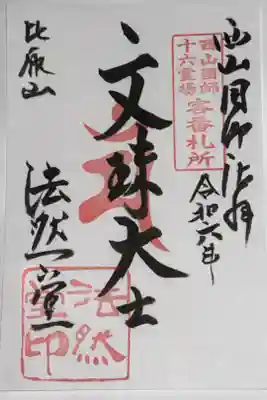 西山国師巡拝
令和六年
西山国師
十六霊場
客番札所
文殊大士
比叡山
法然堂
法然
堂印